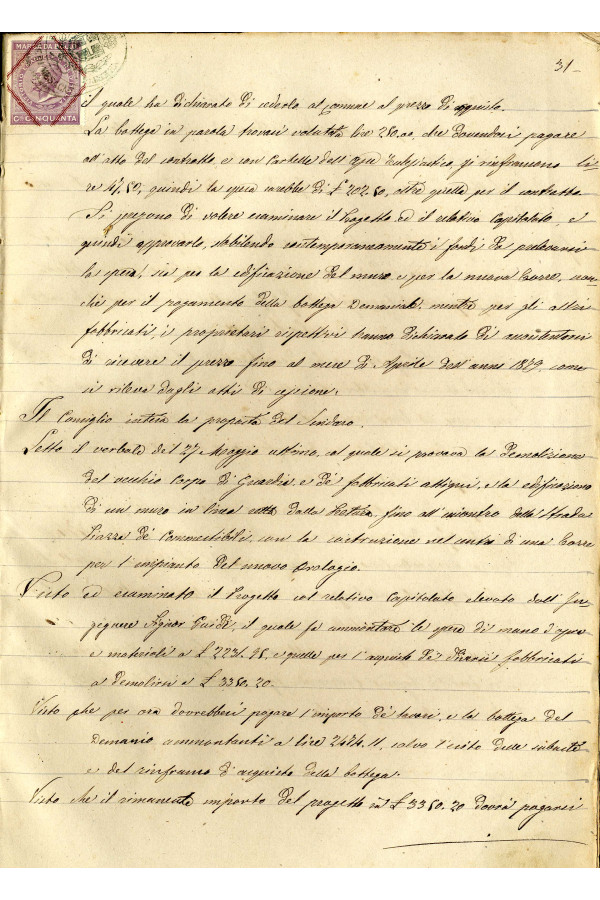 31-
MARCA DA BOLLO
CMI CINQUANTA
il quale ha dichiarato di cederla al Comune al prezzo di acquisto.
La bottega in parola trovasi valutata lire 250.00, che dovendosi pagare
all'atto del contratto, e con Cartelle dell'Asse Ecclesiastico, si rinfrancano li-
re 47.50, quindi la spesa sarebbe di £ 202.50, oltre quella per il contratto.
Si pregono di volere esaminare il Progetto, ed il relativo Capitolato, e
quindi approvarlo, stabilendo contemporaneamente i fondi da prelevarsi
la spesa, sia per la edificazione del muro, e per la nuova Torre, non-
chè per il pagamento della bottega Demaniale, mentre per gli altri
fabbricati, i proprietari rispettivi hanno dichiarato di accontentarsi
di ricevere il prezzo fino al mese di Aprile dell'anno 1879, come
si rileva dagli atti di cessione.
Il Consiglio intesa la proposta del Sindaco.
Letto il verbale del 27 Maggio ultimo, col quale si provava la demolizione
del vecchio Corpo di Guardia, e dè fabbricati attigui, e la edificazione
di un muro in linea retta dalla fino all'incontro della Strada
Piazza dè Commestibili, con la costruzione nel centro di una Torre
per l'impianto del nuovo Orologio.
Visto ed esaminato il Progetto col relativo Capitolato elevato dall'In-
gegnere Signor Guidi, il quale fa ammontare le spese di mano d'opera
e materiali a £ 2231.95, e quelle per l'acquisto dè diversi fabbricati
a demolirsi a £ 3350.20.
Visto che per ora dovrebbesi pagare l'importo dè lavori, e la bottega del
Demanio ammontanti a lire 2474.11, salvo l'esito delle subaste
e del rinfranco d'acquisto della bottega.
Visto che il rimanente importo del progetto in £ 3350.20 dovrà pagarsi